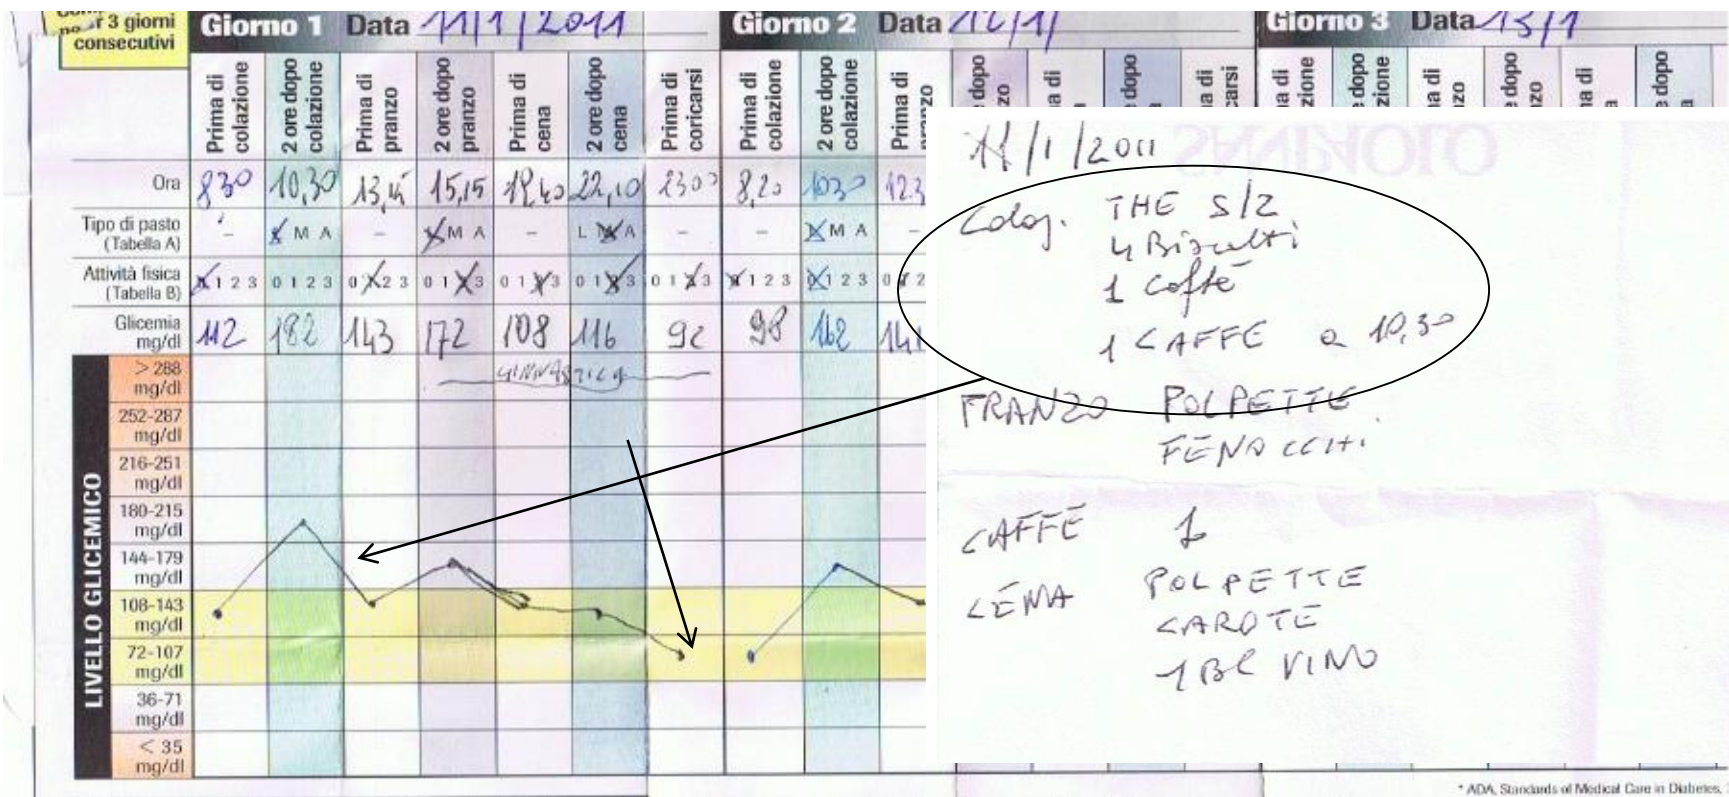 per 3 giorni
consecutivi
Giorno 1 Data 11/1/2011
Giorno 2 Data 12/1/
Giorno 3 Data 13/1
Prima di colazione
2 ore dopo colazione
Prima di pranzo
2 ore dopo pranzo
Prima di cena
2 ore dopo cena
Prima di coricarsi
Prima di colazione
2 ore dopo colazione
Prima di
Ora 830 10,30 13,15 15,15 19,40 22,10 2300 8,20 1030 123
Tipo di pasto (Tabella A) - L M A - L M A - L M A - - L M A -
Attività fisica (Tabella B) 0 1 2 3 0 1 2 3 0 1 2 3 0 1 2 3 0 1 2 3 0 1 2 3 0 1 2 3 0 1 2 3 0 1 2 3 0 1 2
Glicemia mg/dl 112 182 143 172 108 116 92 98 162 141
GINNASTICA
LIVELLO GLICEMICO
> 288 mg/dl
252-287 mg/dl
216-251 mg/dl
180-215 mg/dl
144-179 mg/dl
108-143 mg/dl
72-107 mg/dl
36-71 mg/dl
< 35 mg/dl
11/1/2011
Colaz. THE S/Z
4 Biscotti
1 Caffè
1 CAFFE a 10,30
PRANZO POLPETTE
FINOCCHI
CAFFÉ 1
CENA POLPETTE
CAROTE
1 BC VINO
* ADA, Standards of Medical Care in Diabetes.